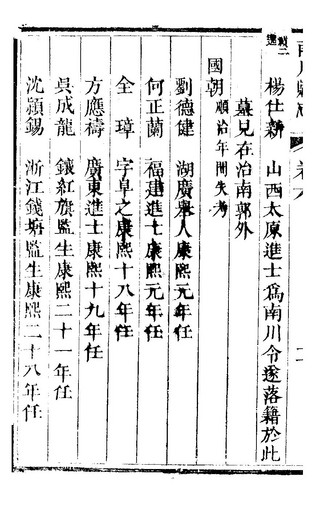 楊仕新 山西太原進士爲南川令遂落籍於此
墓見在治南郭外
國朝 順治年間失考
劉德健 湖廣舉人康熙元年任
何正蘭 福建進士康熙元年任
全璋 字阜之康熙十八年任
方應禱 廣東進士康熙十九年任
吳成龍 鑲紅旗監生康熙二十一年任
沈潁錫 浙江錢塘監生康熙二十八年任